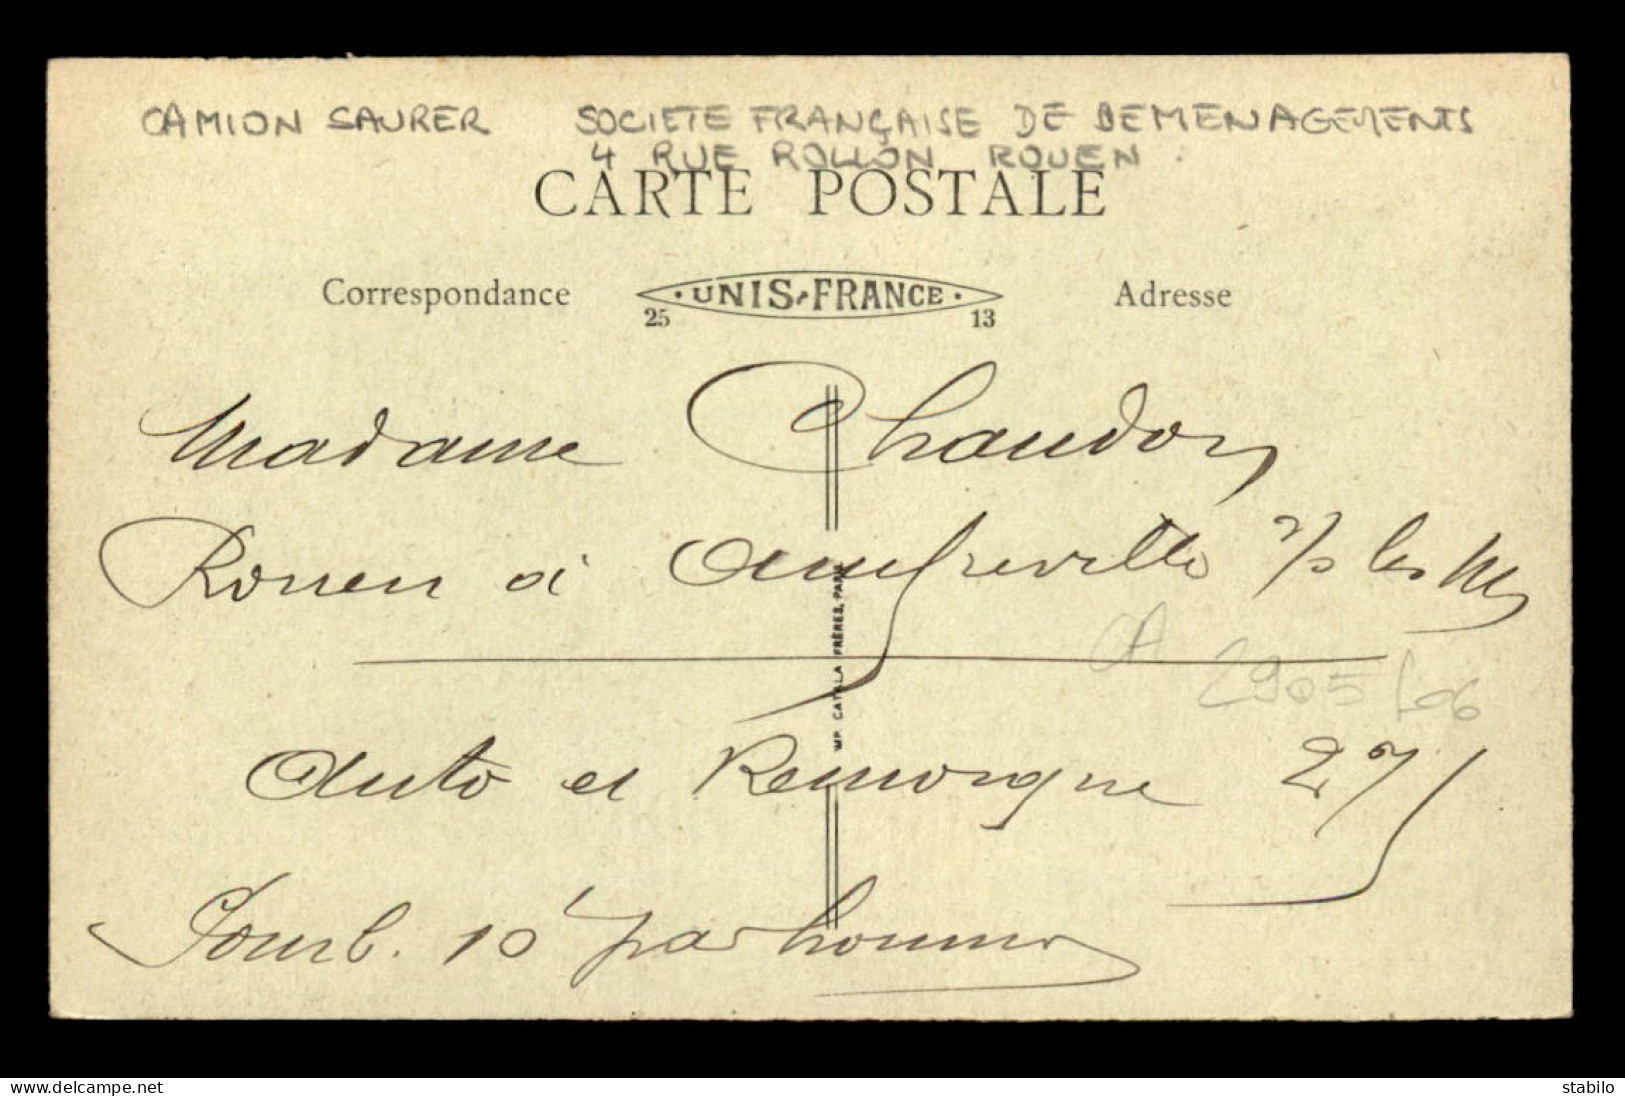 CAMION SAURER SOCIETE FRANÇAISE DE DEMENAGEMENTS
4 RUE ROLLON ROUEN
CARTE POSTALE
Correspondance UNIS-FRANCE Adresse
25 13
Madame Chaudon
Rouen à Amfreville s/s les M
IMP. CATALA FRÈRES, PARIS
CA 2905
Auto et Remorque 275
Pourb. 10 par homme
delcampe.net
stabilo